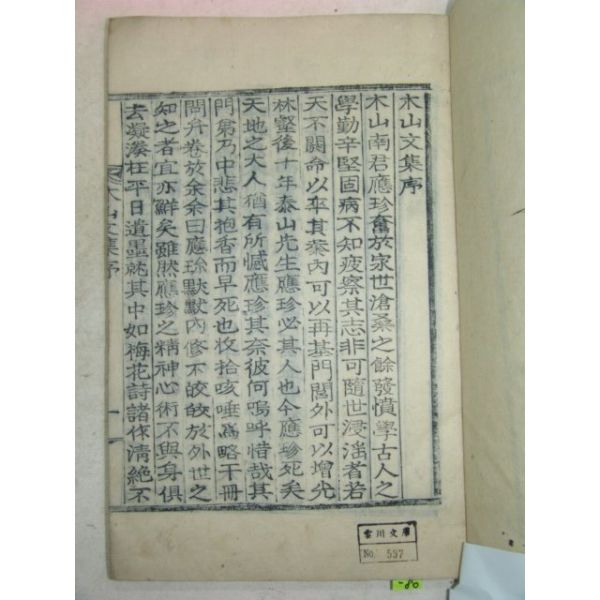 木山文集序
木山南君應珍奮於家世滄桑之餘發憤學古人之
學勤辛堅固病不知疲察其志非可隨世浸滛者若
天不閼命以卒其業內可以再基門閭外可以增光
林壑後十年泰山先生應珍必其人也今應珍死矣
天地之大人猶有所憾應珍其奈彼何嗚呼惜哉其
門弟乃中悲其抱香而早死也收拾咳唾爲略干冊
問弁卷於余余曰應珍默默內修不皎皎於外世之
知之者宜亦鮮矣雖然應珍之精神心術不與身俱
去凝湊在平日遺墨就其中如梅花詩諸作清絕不
木山文集序
一
雪川文庫
No. 597
-80